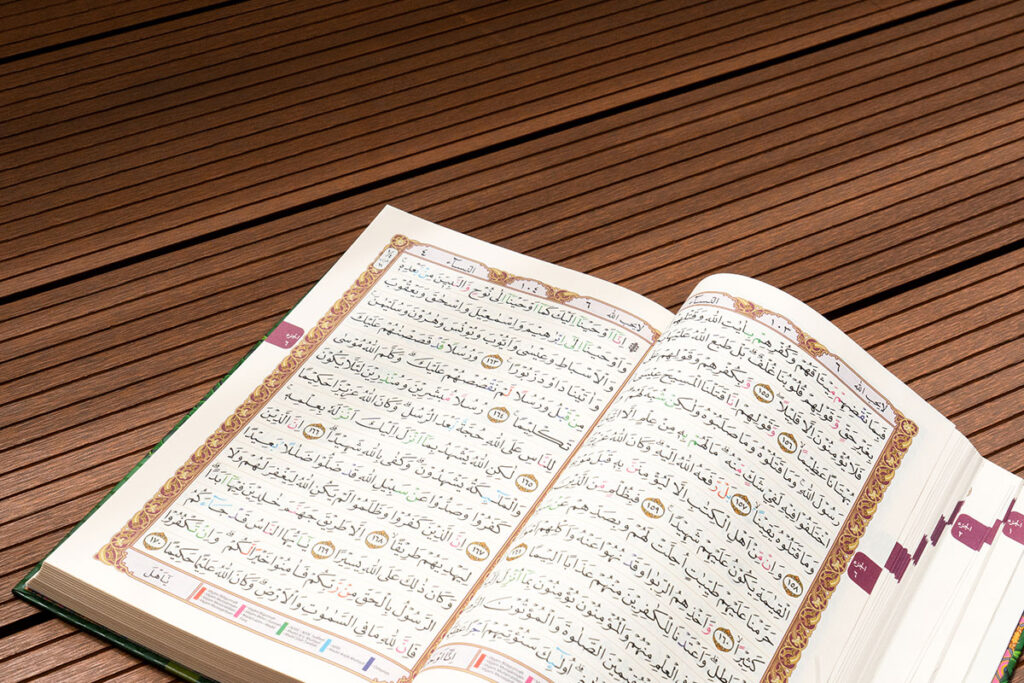 النساء ١٠٣ ٦ لا يحب الله
فَبِمَا نَقْضِهِمْ مِيثَاقَهُمْ وَكُفْرِهِمْ بِآيَاتِ اللَّهِ وَقَتْلِهِمُ
الْأَنْبِيَاءَ بِغَيْرِ حَقٍّ وَقَوْلِهِمْ قُلُوبُنَا غُلْفٌ بَلْ طَبَعَ اللَّهُ عَلَيْهَا
بِكُفْرِهِمْ فَلَا يُؤْمِنُونَ إِلَّا قَلِيلًا ١٥٥ وَبِكُفْرِهِمْ وَقَوْلِهِمْ عَلَى مَرْيَمَ
بُهْتَانًا عَظِيمًا ١٥٦ وَقَوْلِهِمْ إِنَّا قَتَلْنَا الْمَسِيحَ عِيسَى ابْنَ مَرْيَمَ
رَسُولَ اللَّهِ وَمَا قَتَلُوهُ وَمَا صَلَبُوهُ وَلَكِنْ شُبِّهَ لَهُمْ وَإِنَّ الَّذِينَ
اخْتَلَفُوا فِيهِ لَفِي شَكٍّ مِنْهُ مَا لَهُمْ بِهِ مِنْ عِلْمٍ إِلَّا اتِّبَاعَ الظَّنِّ
وَمَا قَتَلُوهُ يَقِينًا ١٥٧ بَلْ رَفَعَهُ اللَّهُ إِلَيْهِ وَكَانَ اللَّهُ عَزِيزًا حَكِيمًا ١٥٨
وَإِنْ مِنْ أَهْلِ الْكِتَابِ إِلَّا لَيُؤْمِنَنَّ بِهِ قَبْلَ مَوْتِهِ وَيَوْمَ
الْقِيَامَةِ يَكُونُ عَلَيْهِمْ شَهِيدًا ١٥٩ فَبِظُلْمٍ مِنَ الَّذِينَ هَادُوا
حَرَّمْنَا عَلَيْهِمْ طَيِّبَاتٍ أُحِلَّتْ لَهُمْ وَبِصَدِّهِمْ عَنْ سَبِيلِ اللَّهِ
كَثِيرًا ١٦٠ وَأَخْذِهِمُ الرِّبَا وَقَدْ نُهُوا عَنْهُ وَأَكْلِهِمْ أَمْوَالَ النَّاسِ
بِالْبَاطِلِ وَأَعْتَدْنَا لِلْكَافِرِينَ مِنْهُمْ عَذَابًا أَلِيمًا ١٦١ لَكِنِ الرَّاسِخُونَ فِي
الْعِلْمِ مِنْهُمْ وَالْمُؤْمِنُونَ يُؤْمِنُونَ بِمَا أُنْزِلَ إِلَيْكَ وَمَا أُنْزِلَ
وَالْمُقِيمِينَ الصَّلَاةَ وَالْمُؤْتُونَ الزَّكَاةَ وَالْمُؤْمِنُونَ
أُولَئِكَ سَنُؤْتِيهِمْ
إِنَّا أَوْحَيْنَا
النساء ٤ ١٠٤ ٦ لا يحب الله
إِنَّا أَوْحَيْنَا إِلَيْكَ كَمَا أَوْحَيْنَا إِلَى نُوحٍ وَالنَّبِيِّينَ مِنْ بَعْدِهِ
وَأَوْحَيْنَا إِلَى إِبْرَاهِيمَ وَإِسْمَاعِيلَ وَإِسْحَاقَ وَيَعْقُوبَ
وَالْأَسْبَاطِ وَعِيسَى وَأَيُّوبَ وَيُونُسَ وَهَارُونَ وَسُلَيْمَانَ
وَآتَيْنَا دَاوُودَ زَبُورًا ١٦٣ وَرُسُلًا قَدْ قَصَصْنَاهُمْ عَلَيْكَ
مِنْ قَبْلُ وَرُسُلًا لَمْ نَقْصُصْهُمْ عَلَيْكَ وَكَلَّمَ اللَّهُ مُوسَى
تَكْلِيمًا ١٦٤ رُسُلًا مُبَشِّرِينَ وَمُنْذِرِينَ لِئَلَّا يَكُونَ
لِلنَّاسِ عَلَى اللَّهِ حُجَّةٌ بَعْدَ الرُّسُلِ وَكَانَ اللَّهُ عَزِيزًا حَكِيمًا
١٦٥ لَكِنِ اللَّهُ يَشْهَدُ بِمَا أَنْزَلَ إِلَيْكَ أَنْزَلَهُ بِعِلْمِهِ
وَالْمَلَائِكَةُ يَشْهَدُونَ وَكَفَى بِاللَّهِ شَهِيدًا ١٦٦ إِنَّ الَّذِينَ
كَفَرُوا وَصَدُّوا عَنْ سَبِيلِ اللَّهِ قَدْ ضَلُّوا ضَلَالًا بَعِيدًا
١٦٧ إِنَّ الَّذِينَ كَفَرُوا وَظَلَمُوا لَمْ يَكُنِ اللَّهُ لِيَغْفِرَ لَهُمْ وَلَا
لِيَهْدِيَهُمْ طَرِيقًا ١٦٨ إِلَّا طَرِيقَ جَهَنَّمَ خَالِدِينَ فِيهَا أَبَدًا
وَكَانَ ذَلِكَ عَلَى اللَّهِ يَسِيرًا ١٦٩ يَا أَيُّهَا النَّاسُ قَدْ جَاءَكُمُ
الرَّسُولُ بِالْحَقِّ مِنْ رَبِّكُمْ فَآمِنُوا خَيْرًا لَكُمْ وَإِنْ تَكْفُرُوا
فَإِنَّ لِلَّهِ مَا فِي السَّمَاوَاتِ وَالْأَرْضِ وَكَانَ اللَّهُ عَلِيمًا حَكِيمًا ١٧٠
يَا أَهْلَ
الجزء ٦
الجزء
الجزء